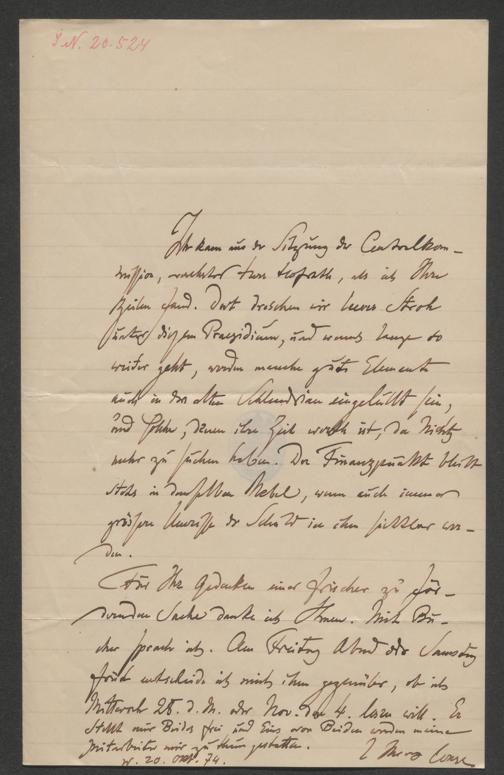 I. N. 20.524
Ich kam aus der Sitzung der Centralkom-
mission, verehrter Herr Hofrath, als ich Ihre
Zeilen fand. Dort dreschen wir leeres Stroh
unter diesem Praesidium, und wenns lange so
weiter geht, werden manche gute Elemente
auch in den alten Schlendrian eingelullt sein,
und Solche, denen ihre Zeit werth ist, da Nichts
mehr zu suchen haben. Der Finanzpunkt bleibt
stets in demselben Nebel, wenn auch immer
grössere Umrisse der Schuld in ihm sichtbar wer-
den.
Für Ihr Gedenken einer frischer zu för-
dernden Sache danke ich Ihnen. Mit Bu-
cher sprach ich. Am Freitag Abend oder Samstag
früh entscheide ich mich ihm gegenüber, ob ich
Mittwoch 28. d. M. oder Nov. den 4. lesen will. Er
stellt mir Beides frei und Eins von Beiden werden meine
Mitarbeiter mir zu thun gestatten.
W. 20. Oct. 74. Conze